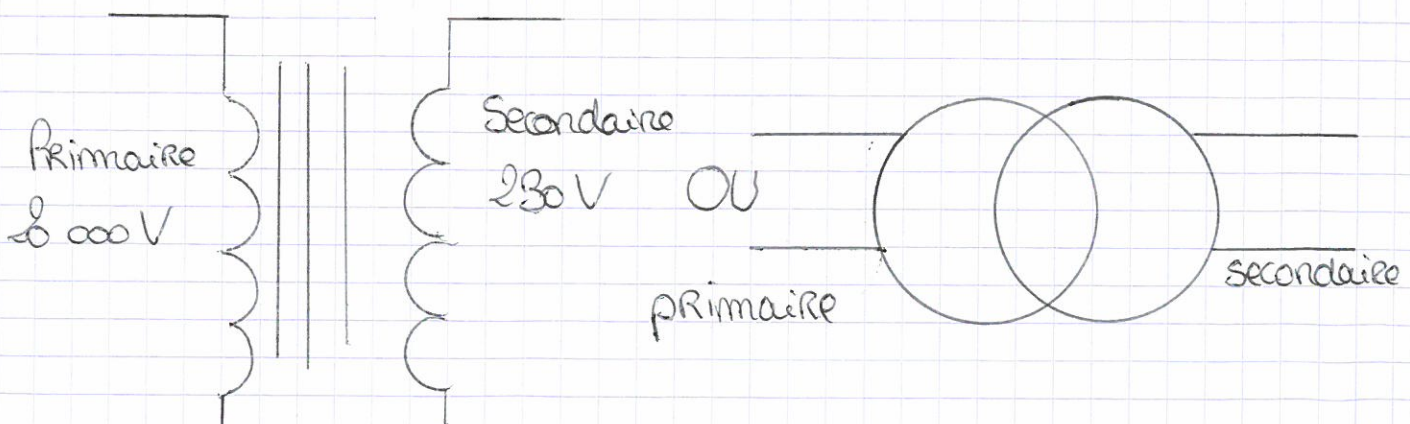 Primaire
20 000 V
Secondaire
230 V
OU
primaire
secondaire